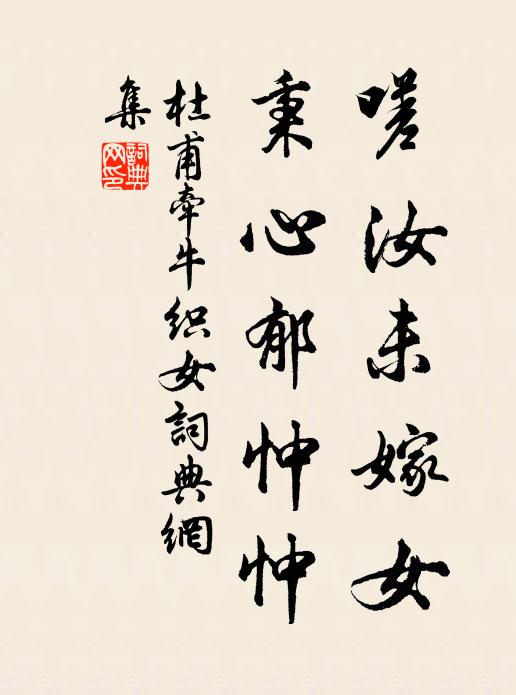 嗟汝未嫁女
秉心郁忡忡
杜甫牵牛织女詞典網
集
詞典網印